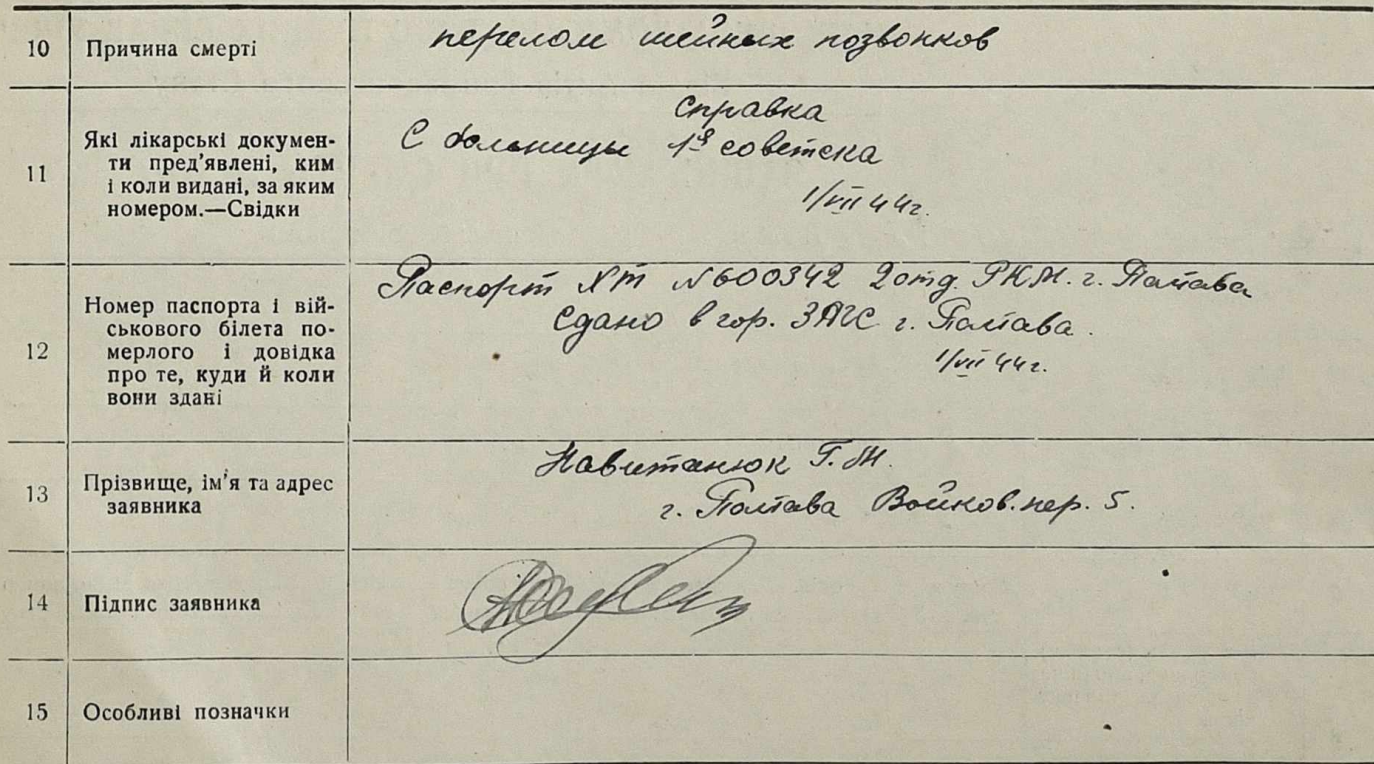 10 Причина смерті
перелом шейных позвонков
11 Які лікарські докумен-
ти пред'явлені, ким
і коли видані, за яким
номером.—Свідки
справка
С больницы 1й советска
1/VII 44г.
12 Номер паспорта і вій-
ськового білета по-
мерлого і довідка
про те, куди й коли
вони здані
Паспорт №600342 2 отд. РКМ. г. Полтава
Сдано в гор. ЗАГС г. Полтава.
1/VII 44г.
13 Прізвище, ім'я та адрес
заявника
Навитанюк
г. Полтава Войков. пер. 5.
14 Підпис заявника
15 Особливі позначки